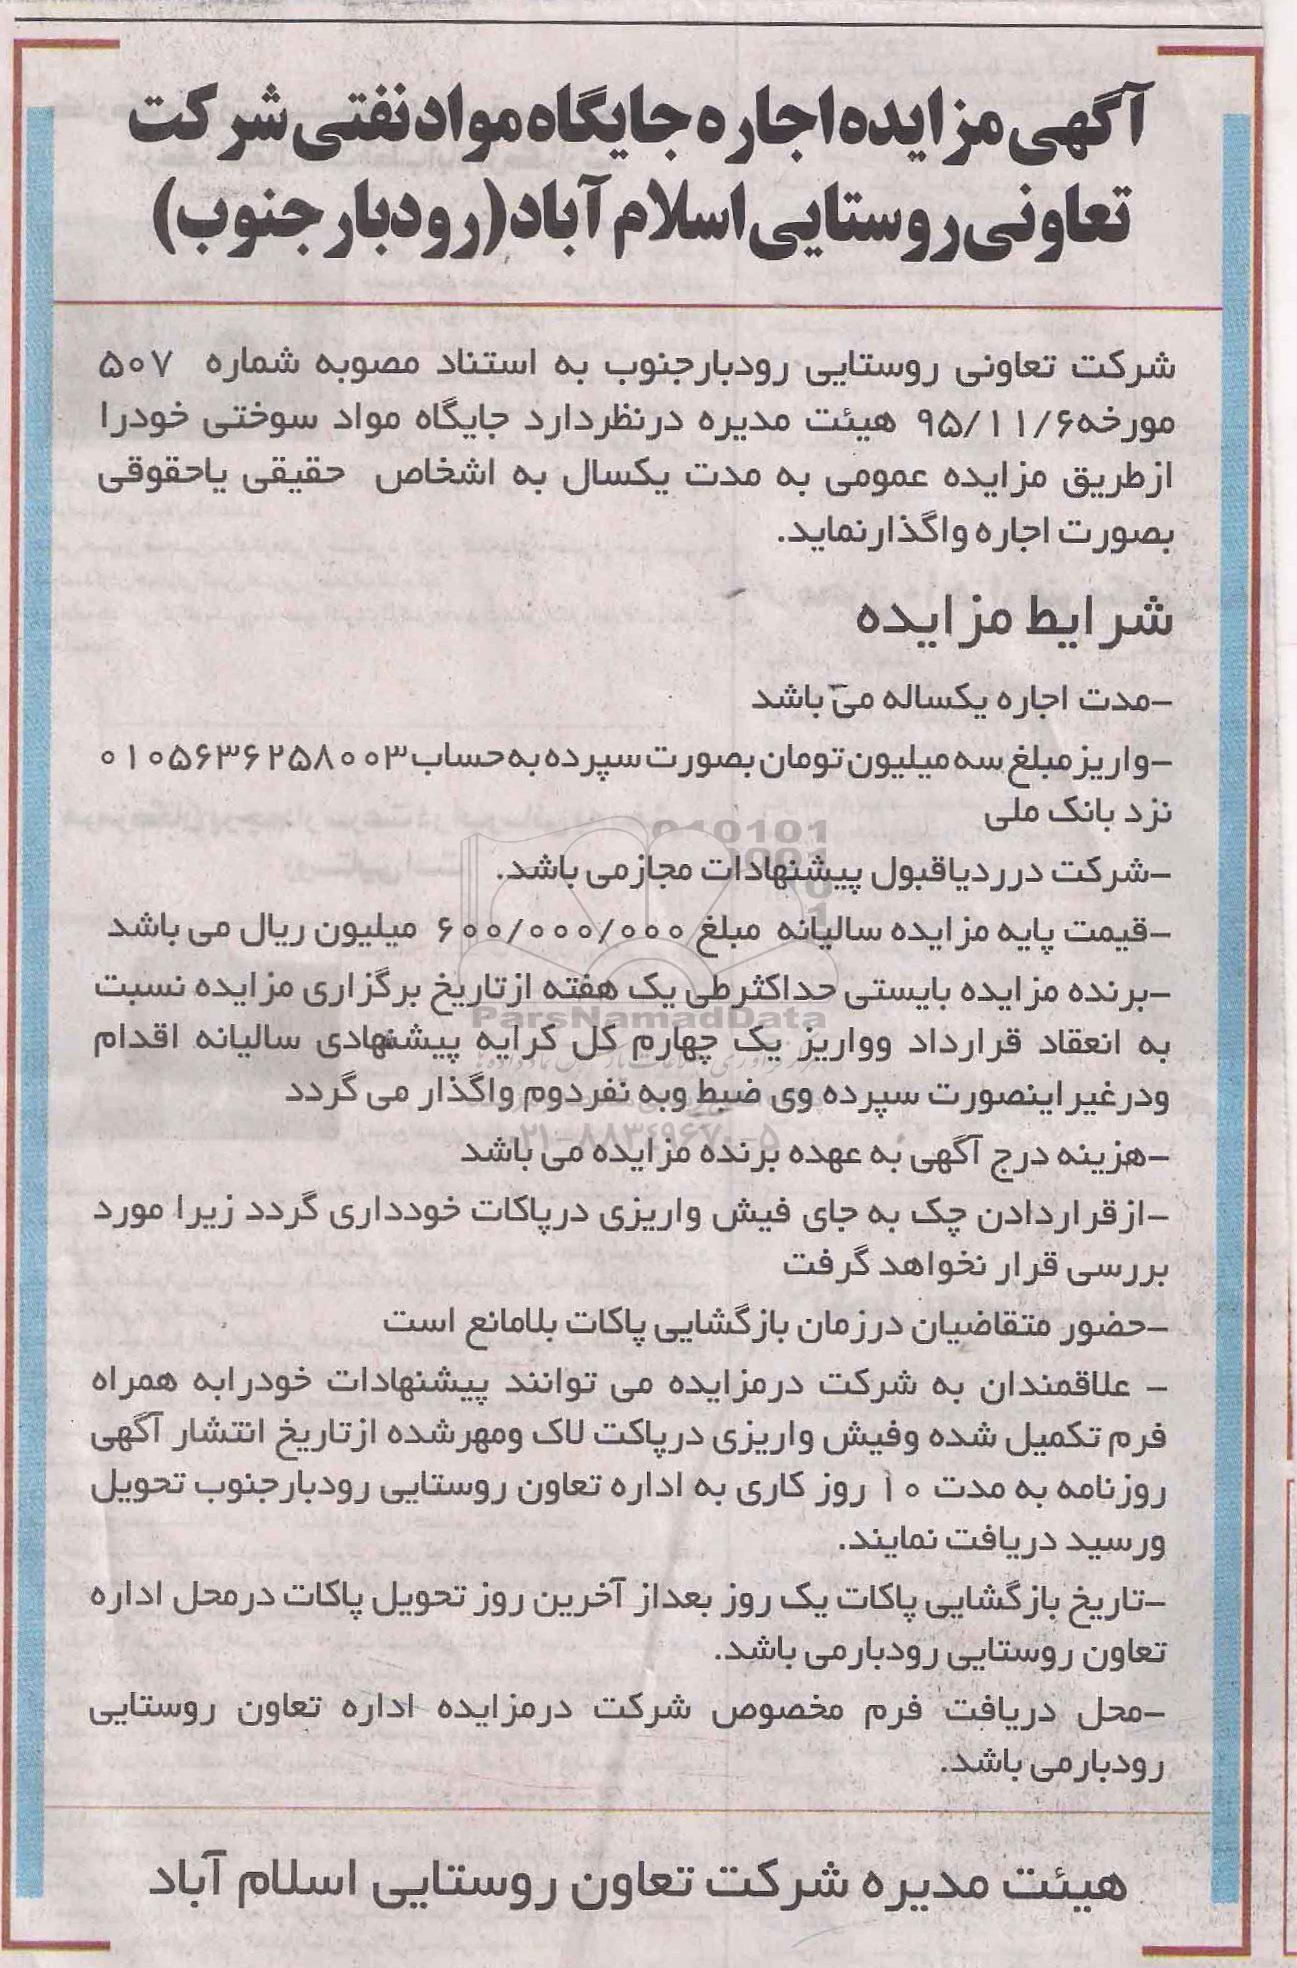 آگهی مزایده اجاره جایگاه مواد نفتی شرکت
تعاونی روستایی اسلام آباد (رودبار جنوب)
شرکت تعاونی روستایی رودبارجنوب به استناد مصوبه شماره ۵۰۷
مورخه ۹۵/۱۱/۶ هیئت مدیره درنظردارد جایگاه مواد سوختی خودرا
ازطریق مزایده عمومی به مدت یکسال به اشخاص حقیقی یاحقوقی
بصورت اجاره واگذارنماید.
شرایط مزایده
-مدت اجاره یکساله می باشد
-واریز مبلغ سه میلیون تومان بصورت سپرده به حساب ۰۱۰۵۶۳۶۲۵۸۰۰۳
نزد بانک ملی
-شرکت درردیاقبول پیشنهادات مجازمی باشد.
-قیمت پایه مزایده سالیانه مبلغ ۶۰۰/۰۰۰/۰۰۰ میلیون ریال می باشد
-برنده مزایده بایستی حداکثرطی یک هفته ازتاریخ برگزاری مزایده نسبت
به انعقاد قرارداد وواریز یک چهارم کل کرایه پیشنهادی سالیانه اقدام
ودرغیراینصورت سپرده وی ضبط وبه نفردوم واگذار می گردد
-هزینه درج آگهی به عهده برنده مزایده می باشد
-ازقراردادن چک به جای فیش واریزی درپاکات خودداری گردد زیرا مورد
بررسی قرار نخواهد گرفت
-حضور متقاضیان درزمان بازگشایی پاکات بلامانع است
- علاقمندان به شرکت درمزایده می توانند پیشنهادات خودرابه همراه
فرم تکمیل شده وفیش واریزی درپاکت لاک ومهرشده ازتاریخ انتشار آگهی
روزنامه به مدت ۱۰ روز کاری به اداره تعاون روستایی رودبارجنوب تحویل
ورسید دریافت نمایند.
-تاریخ بازگشایی پاکات یک روز بعداز آخرین روز تحویل پاکات درمحل اداره
تعاون روستایی رودبارمی باشد.
-محل دریافت فرم مخصوص شرکت درمزایده اداره تعاون روستایی
رودبارمی باشد.
هیئت مدیره شرکت تعاون روستایی اسلام آباد
ParsNamadData